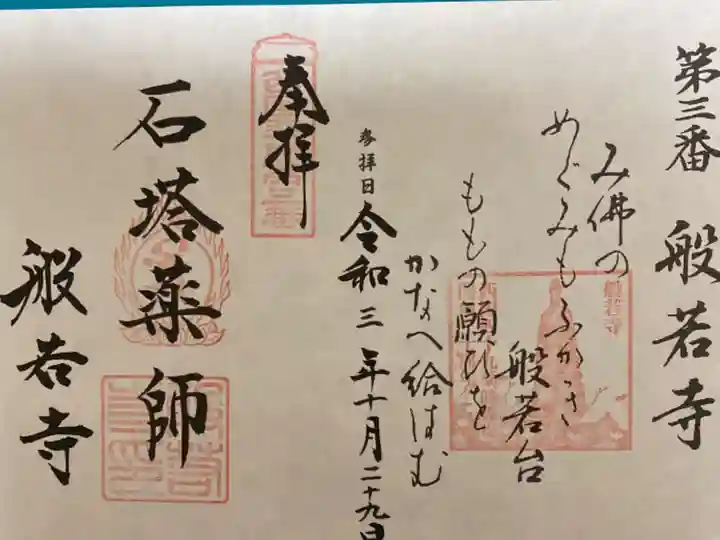 第三番 般若寺
み佛の
めぐみもふかき
般若台
ももの願ひを
かなへ給はむ
般若寺
参拝日 令和三年十月二十九日
奉拝
石塔薬師
般若寺